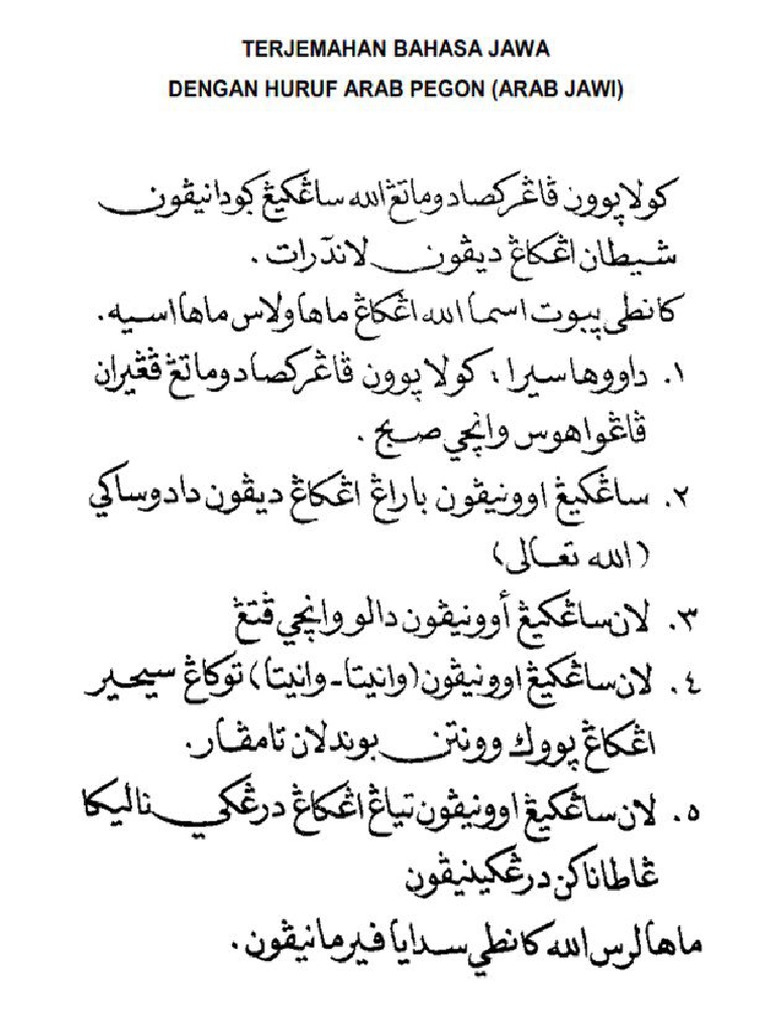 TERJEMAHAN BAHASA JAWA
DENGAN HURUF ARAB PEGON (ARAB JAWI)
كولا ڽوون ڤاڠركصا دوماتڠ الله ساڠكيڠ ڮودانيڤون
شيطان اڠكاڠ ديڤون لاندرات .
كانطي ڽبوت اسما الله اڠكاڠ ماها ولاس ماها اسيه .
١. داووها سيرا ، كولا ڽوون ڤاڠركصا دوماتڠ ڤڠيران
ڤاڠواهوس وانچي صبح .
٢. ساڠكيڠ اوونيڤون باراڠ اڠكاڠ ديڤون دادوساكي
(الله تعالى)
٣. لان ساڠكيڠ أوونيڤون دالو وانچي ڤتڠ
٤. لان ساڠكيڠ اوونيڤون (وانيتا - وانيتا) توكاڠ سيحير
اڠكاڠ ڽووك وونتن بوندلان تامڤار .
٥. لان ساڠكيڠ اوونيڤون تياڠ اڠكاڠ درڠكي ناليكا
ڠاطاناكن درڠكينيڤون
ماها لرس الله كانطي سدايا فيرمانيڤون .